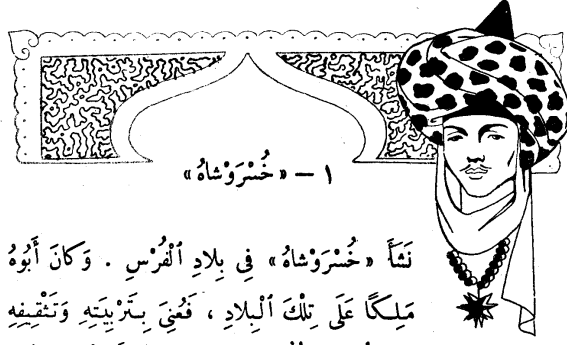 ١ – «خُسْرَوْشاهُ»
نَشَأَ «خُسْرَوْشاهُ» فِي بِلادِ ٱلْفُرْسِ . وَكانَ أَبُوهُ
مَلِكًا عَلَى تِلْكَ ٱلْبِلادِ ، فَعُنِيَ بِتَرْبِيَتِهِ وَتَثْقِيفِهِ